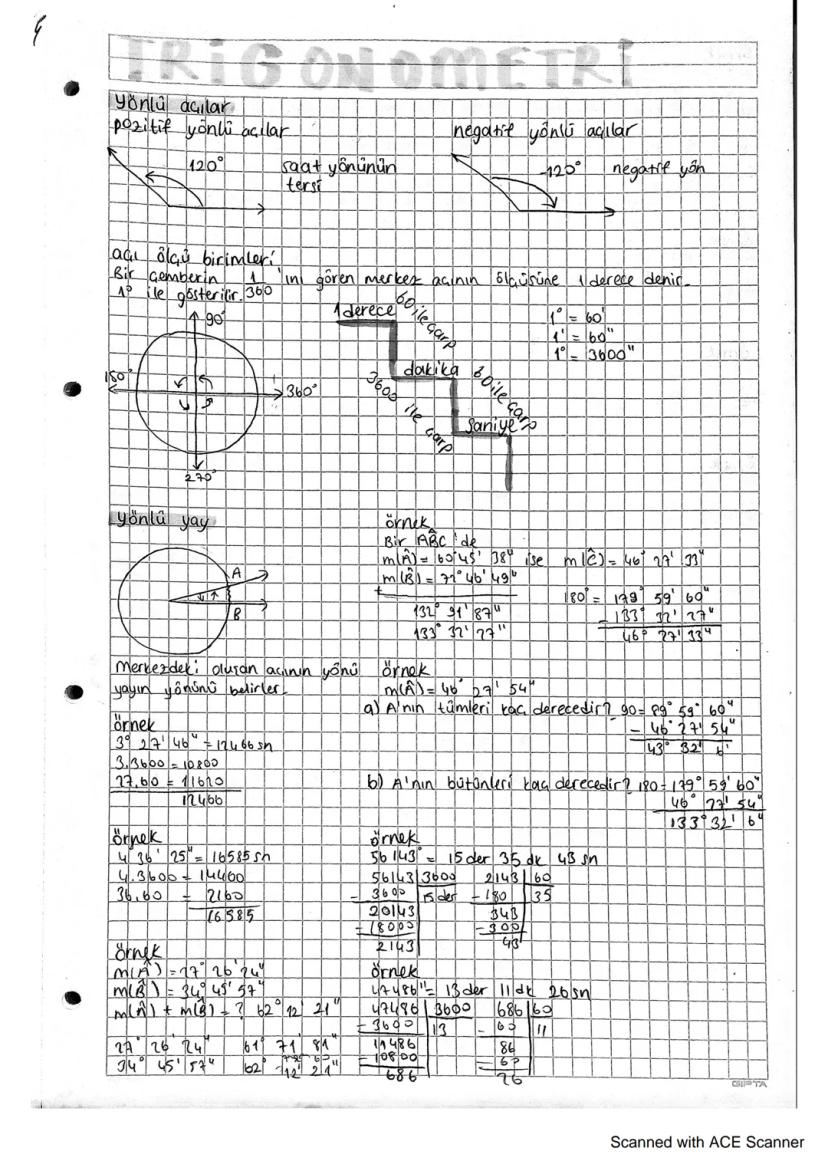 4
TRİGONOMETRİ
Yönlü açılar
pozitif yönlü açılar
120°
saat yönünün
tersi
negatif yönlü açılar
-120°
negatif yön
açı ölçü birimleri
Bir çemberin 1/360 'ını gören merkez açının ölçüsüne 1 derece denir.
1° ile gösterilir.
90°
180°
360°
270°
1 derece
60 ile çarp
dakika
60 ile çarp
saniye
3600 ile çarp
1° = 60'
1' = 60"
1° = 3600"
Yönlü yay
A
B
Merkezdeki oluşan açının yönü
yayın yönünü belirler.
örnek
Bir ABC 'de
m(Â) = 60° 45' 38" ise m(Ĉ) = 46° 27' 33"
m(B̂) = 72° 46' 49"
+
132° 91' 87"
133° 32' 27"
180° = 179° 59' 60"
- 133° 32' 27"
46° 27' 33"
örnek
m(Â) = 46° 27' 54"
a) A'nın tümleri kaç derecedir? 90 = 89° 59' 60"
- 46° 27' 54"
43° 32' 6'
b) A'nın bütünleri kaç derecedir? 180 = 179° 59' 60"
46° 27' 54"
133° 32' 6"
örnek
3° 27' 46" = 12466 sn
3.3600 = 10800
27.60 = 11620
12466
örnek
4 36' 25" = 16585 sn
4.3600 = 14400
36.60 = 2160
16585
örnek
56143" = 15 der 35 dk 43 sn
56143 3600
- 3600 15 der
20143
- 18000
2143
2143 60
- 180 35
343
- 300
43
örnek
m(Â) = 27° 26' 24"
m(B̂) = 34° 45' 57"
m(Â) + m(B̂) = ? 62° 12' 21"
27° 26' 24" 61° 71' 81"
34° 45' 57" 62° 12' 21"
örnek
47486" = 13 der 11 dk 26 sn
47486 3600
- 3600 13
11486
- 10800
686
686 60
- 60 11
86
- 60
26
GIPTA
Scanned with ACE Scanner